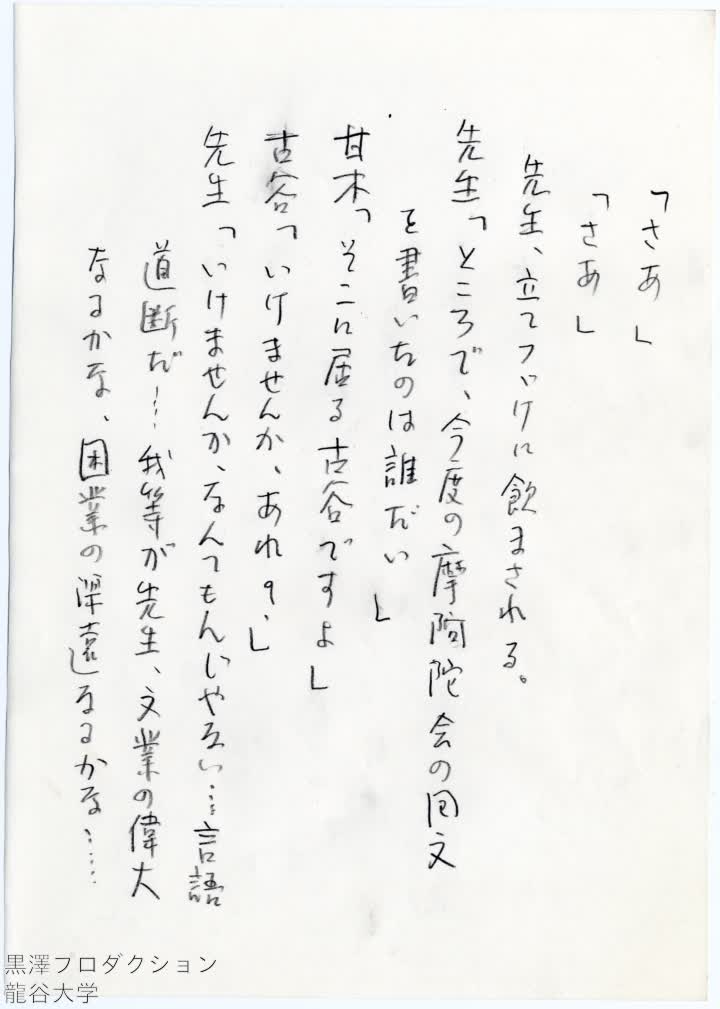 「さあ」
「さあ」
先生、立てつゞけに飲まされる。
先生「ところで、今度の摩阿陀会の回文
を書いたのは誰だい」
甘木「そこに居る古谷ですよ」
古谷「いけませんか、あれ?」
先生「いけませんか、なんてもんじゃない…言語
道断だ…我等が先生、文業の偉大
なるかな、囷業の深遠なるかな……
黒澤プロダクション
龍谷大学